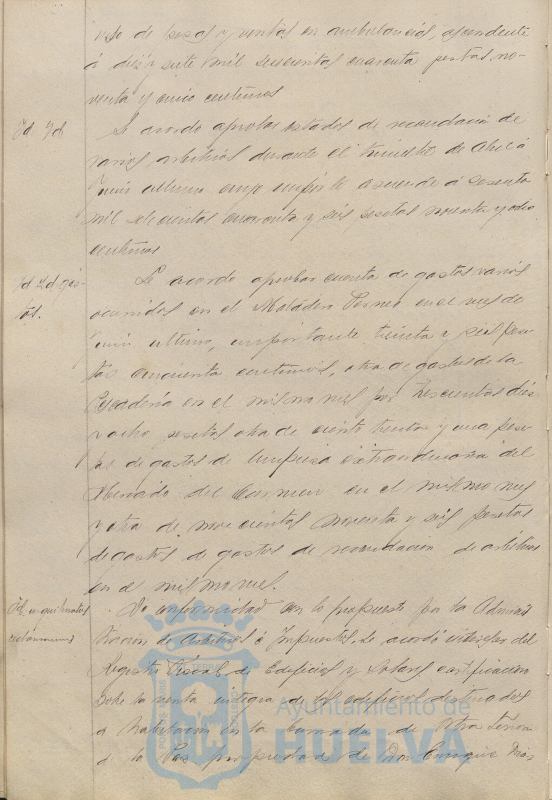 de pesas y ventas en ambulancias, ascendente
á diez y siete mil seiscientas cuarenta pesetas no-
venta y cinco centimos
Id Id
Se acordo aprobar estados de recaudacion de
varios arbitrios durante el trimestre de Abril á
Junio ultimo cuyo importe asciende á sesenta
mil setecientas cuarenta y seis pesetas noventa y ocho
centimos
Id Id gas-
tos.
Se acordo aprobar cuenta de gastos varios
ocurridos en el Matadero en el mes de
Junio ultimo, importante treinta y seis pese-
tas cincuenta centimos, otra de gastos de la
Pescadería en el mismo mes por trescientas diez
y ocho pesetas otra de ciento treinta y una pese-
tas de gastos de limpieza extraordinaria del
Mercado del Carmen en el mismo mes
y otra de novecientas noventa y seis pesetas
de gastos de gastos de recaudacion de arbitrios
en el mismo mes.
De conformidad con lo propuesto por la Adminis-
tracion de Arbitrios é Impuestos, se acordó del
Registro Fiscal de Edificios y Solares certificacion
sobre la renta integra de los edificios destinados
a habitacion en la barriada de Ntra Señora
de la Paz propiedad de Don Enrique Diaz
Ayuntamiento de
HUELVA